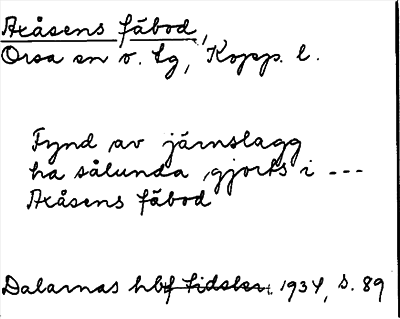 Axåsens fäbod,
Orsa sn o. lg, Kopp. l.
Fynd av järnslagg
ha sålunda gjorts i ---
Axåsens fäbod
Dalarnas hbf tidskr. 1934, s. 89